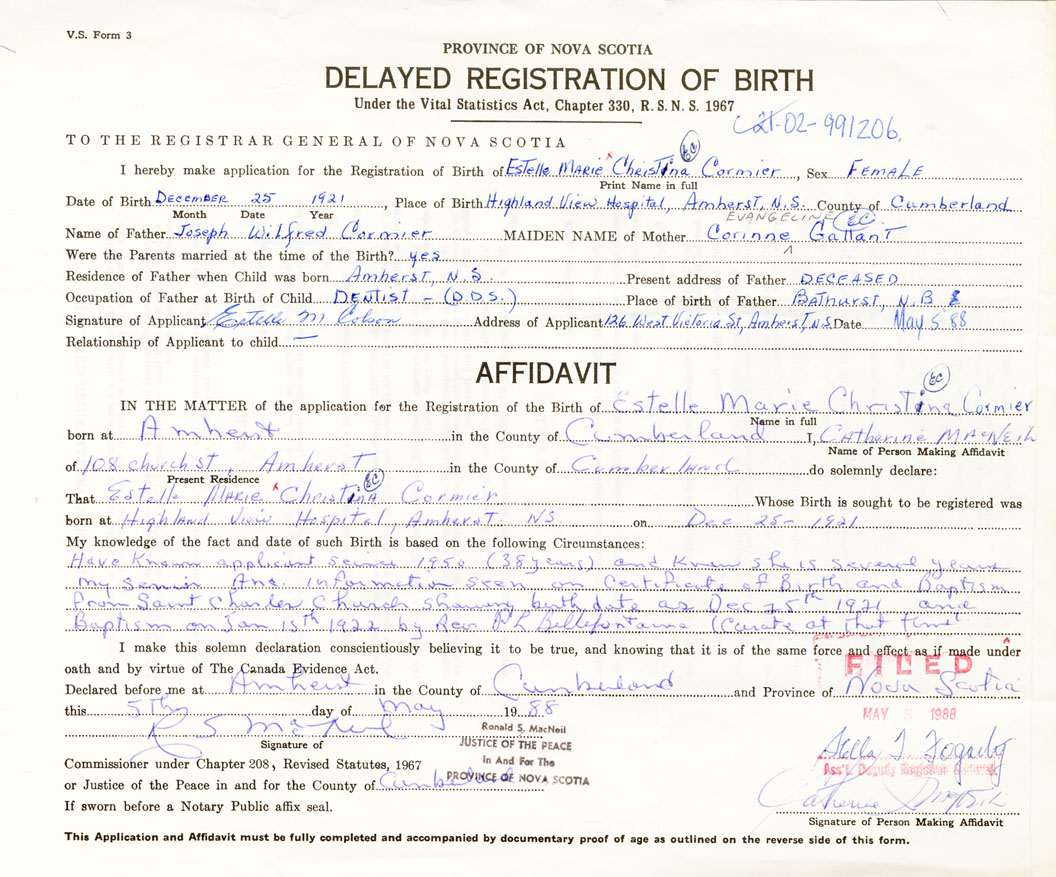 V.S. Form 3
PROVINCE OF NOVA SCOTIA
DELAYED REGISTRATION OF BIRTH
Under the Vital Statistics Act, Chapter 330, R.S.N.S. 1967
21-02-991206.
TO THE REGISTRAR GENERAL OF NOVA SCOTIA
EC
I hereby make application for the Registration of Birth of Estelle Marie Christina Cormier, Sex FEMALE
Print Name in full
Date of Birth December 25 1921, Place of Birth Highland View Hospital, Amherst, N.S. County of Cumberland
Month Date Year EVANGELINE EC
Name of Father Joseph Wilfred Cormier MAIDEN NAME of Mother Corinne Gallant
Were the Parents married at the time of the Birth? yes
Residence of Father when Child was born Amherst, N.S. Present address of Father DECEASED
Occupation of Father at Birth of Child DENTIST - (D.D.S.) Place of birth of Father Bathurst, N.B
Signature of Applicant Estelle M Colson Address of Applicant 126 West Victoria St, Amherst, N.S. Date May 5 '88
Relationship of Applicant to child —
AFFIDAVIT
EC
IN THE MATTER of the application for the Registration of the Birth of Estelle Marie Christina Cormier
Name in full
born at Amherst in the County of Cumberland I, Catherine MacNeil
Name of Person Making Affidavit
of 108 Church St, Amherst in the County of Cumberland do solemnly declare:
Present Residence EC
That Estelle Marie Christina Cormier Whose Birth is sought to be registered was
born at Highland View Hospital, Amherst NS on Dec 25 - 1921
My knowledge of the fact and date of such Birth is based on the following Circumstances:
Have Known applicant since 1950 (38 years) and Know she is several years
my senior And information seen on Certificate of Birth and Baptism
from Saint Charles Church showing birth date as Dec 25th 1921 and
Baptism on Jan 15th 1922 by Rev Bellefontaine (Curate at that time
I make this solemn declaration conscientiously believing it to be true, and knowing that it is of the same force and effect as if made under
oath and by virtue of The Canada Evidence Act.
FILED
Declared before me at Amherst in the County of Cumberland and Province of Nova Scotia
this 5th day of May 1988
MAY 5 1988
R S MacNeil
Ronald S. MacNeil
Signature of
JUSTICE OF THE PEACE
Stella T Fogarty
Commissioner under Chapter 208, Revised Statutes, 1967
In And For The
Ass't. Deputy Registrar General
or Justice of the Peace in and for the County of Cumberland
PROVINCE OF NOVA SCOTIA
Catherine MacNeil
If sworn before a Notary Public affix seal.
Signature of Person Making Affidavit
This Application and Affidavit must be fully completed and accompanied by documentary proof of age as outlined on the reverse side of this form.